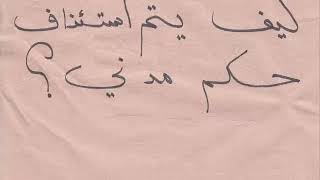 كيف يتم استئناف
حكم مدني؟